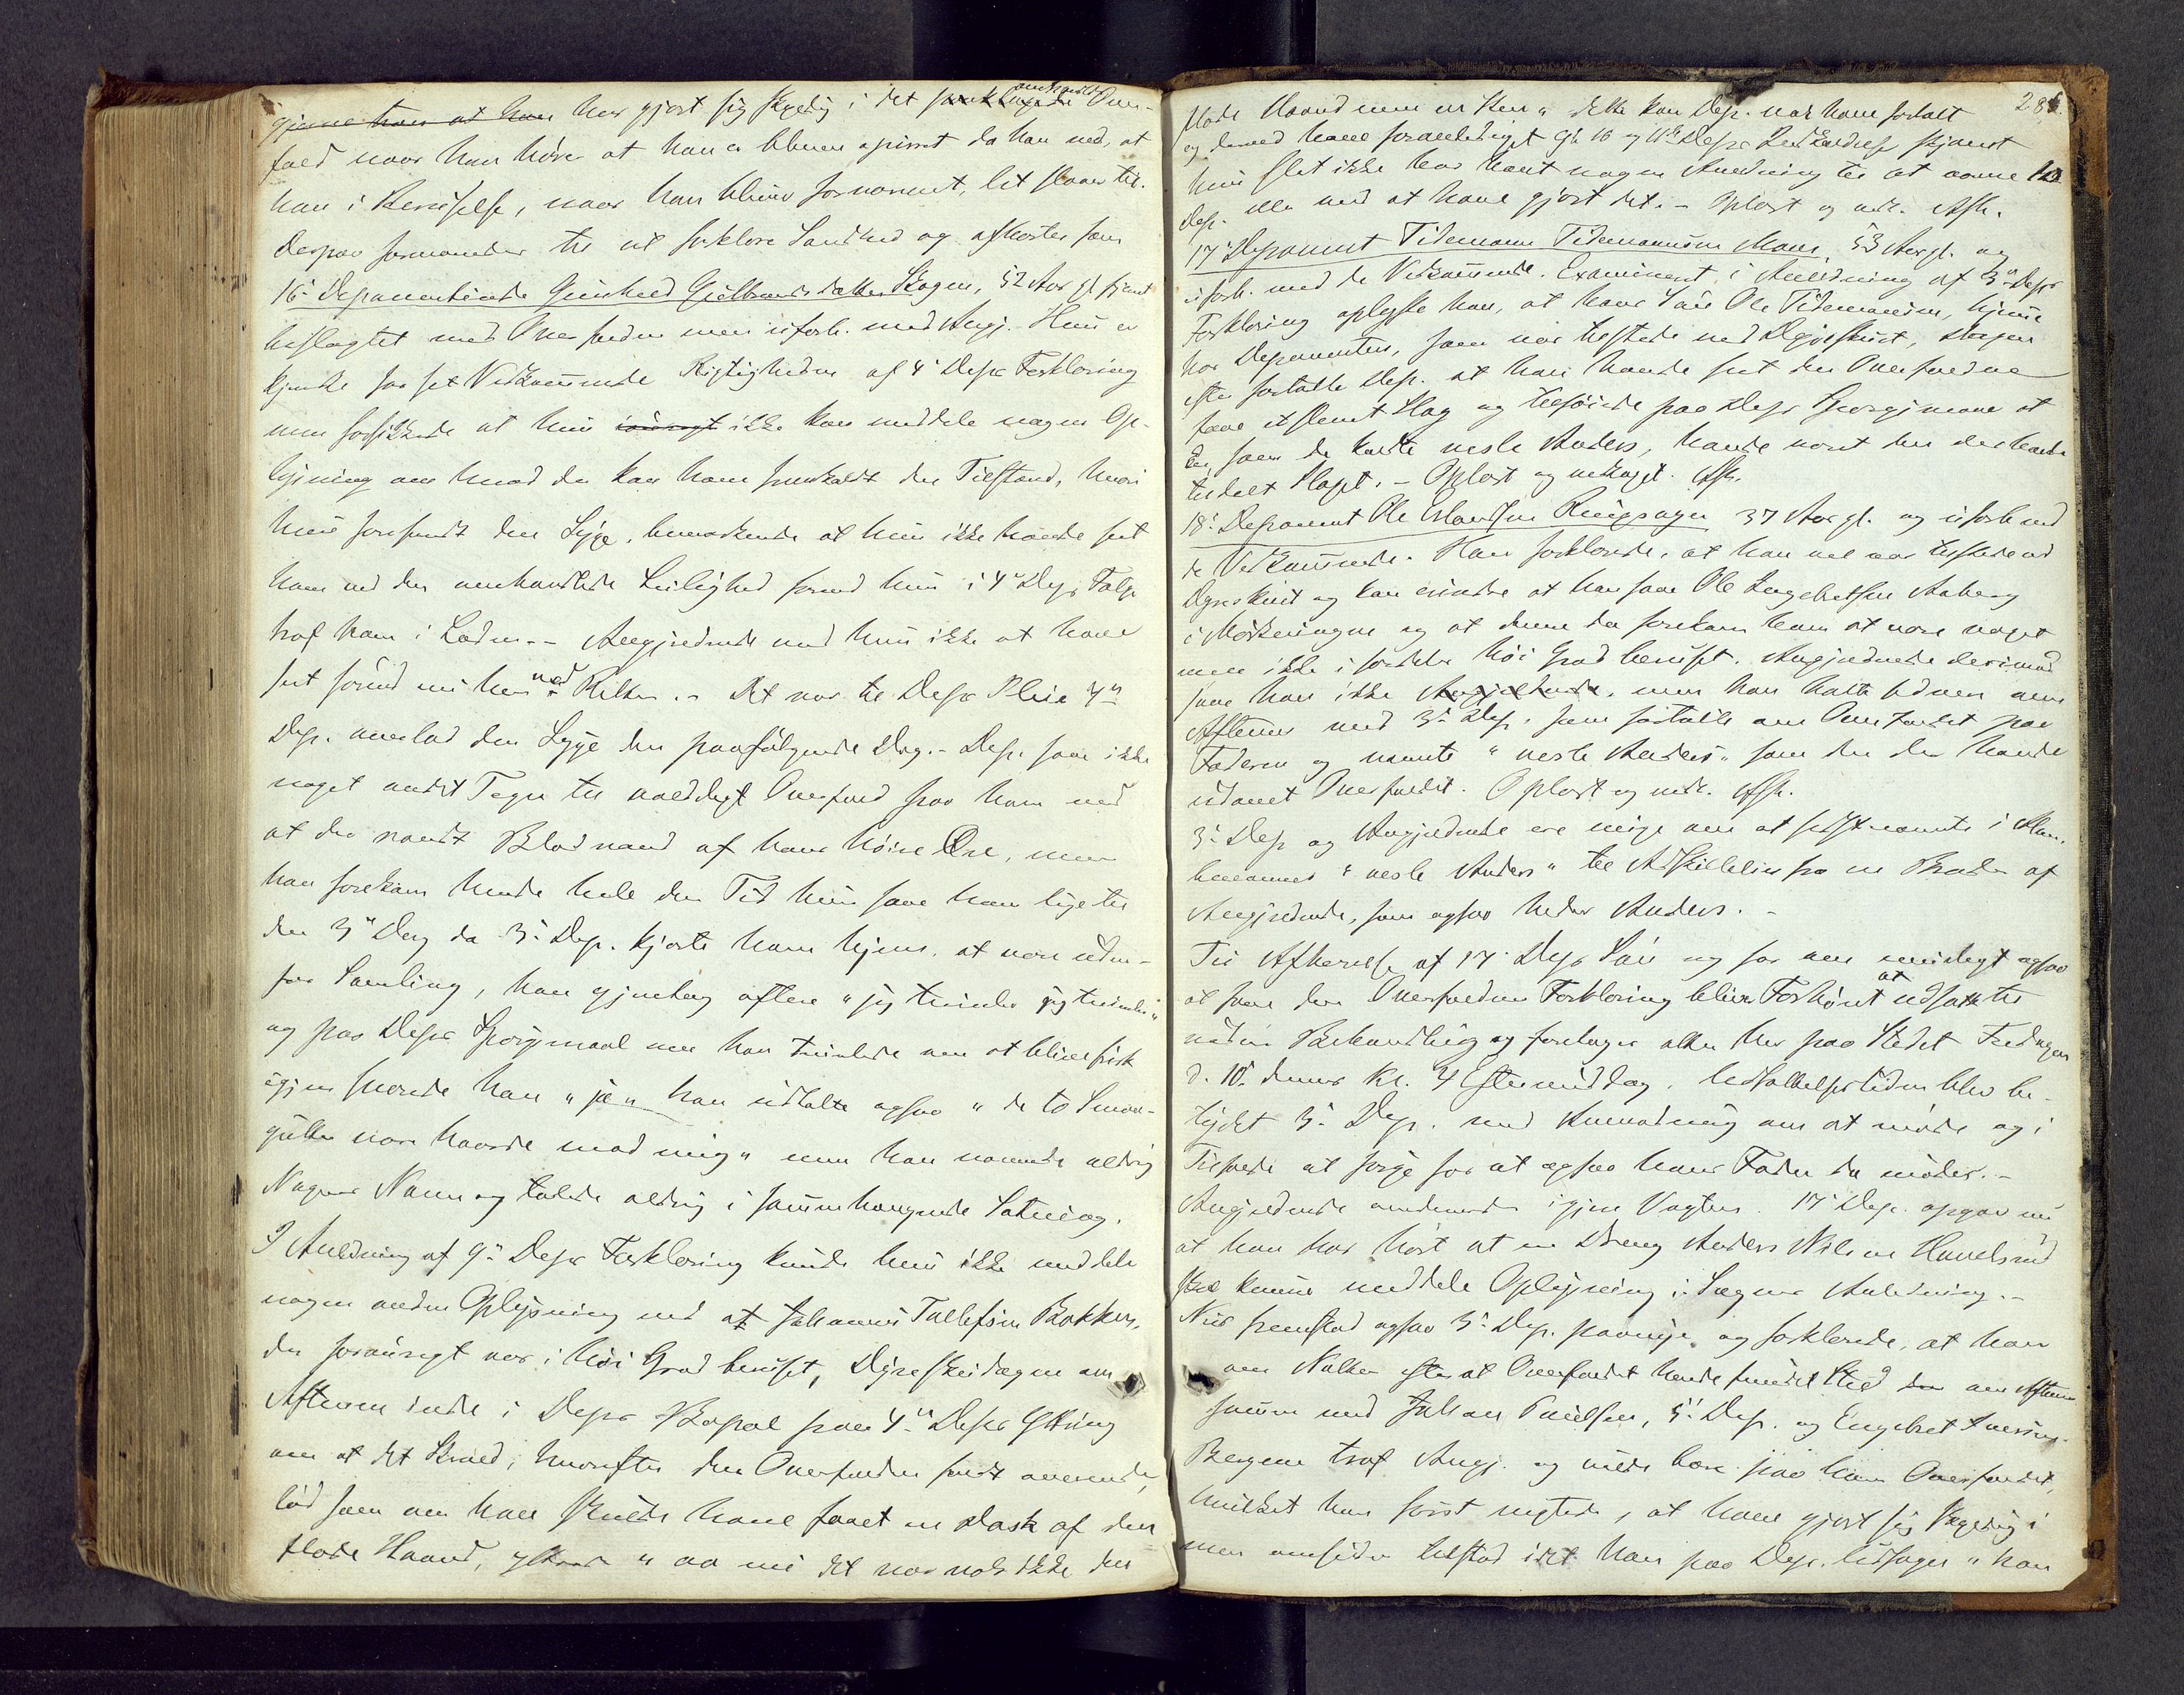 har gjort sig skyldig i det omhandlede Over-
fald naar han hører at han er bleven opirret da han ved, at
han i Beruselse, naar han bliver fornærmet, let slaaer til.
Derpaa formanedes til at forklare Sandhed og afhørtes som
16de Deponentinde Gunhild Gulbrandsdatter Skogen, 52 Aar gl. fjernt
beslægtet med Overfaldne men uforb. med Angj. Hun er-
kjendte for sit Vedkommende Rigtigheden af 4de Deps Forklaring
men forsikkrede at hun iøvrigt ikke kan meddele nogen Op-
lysning om hvad der kan have fremkaldt den Tilstand, hvori
hun forefandt den Syge, bemærkende at hun ikke havde seet
ham ved den omhandlede Leilighed førend hun i 4de Deps Følge
traf ham i Laden. - Angjældende ved hun ikke at have
seet førend nu her ved Retten. - Det var til Deps Pleie 4de
Dep. overlod den Syge den paafølgende Dag. - Dep. saae ikke
noget andet Tegn til voldeligt Overfald paa ham end
at der randt Blodvand af hans høire Øre, men
han forekom hende hele den Tid hun saae ham lige til
den 3de Dag da 3de Dep. kjørte ham hjem, at være uden-
for Samling, han gjentog oftere "jeg trimler jeg trimler"
og paa Deps Spørgsmaal om han tvivlede om at blive frisk
igjen svarede han "ja" han udtalte ogsaa "de to Smaa-
gutter vare haarde mod mig" men han nævnte aldrig
Nogens Navn og talede aldrig i sammenhængende Sætning.
I Anledning af 9de Deps Forklaring kunde hun ikke meddele
nogen anden Oplysning end at Johannes Tollefsen Bakken,
der forøvrigt var i høi Grad beruset, Dyreskuedagen om
Aftenen inde i Deps Bopæl paa 4de Deps Yttring
om at det Skued, hvorefter den Overfaldne faldt overende,
lød som om han skulde have faaet en Dask af den
flade Haand, yttrede "aa nei det var nok ikke den
285
flade Haand men en Sten" dette kan Dep. nok have fortalt
og derved have foranlediget 9de 10 og 11te Deps Beskyldelse skjønt
hun slet ikke har havt nogen Anledning til at nævne 10
Dep. eller ved at have gjort det. - Oplæst og vedt. Afh.
17de Deponent Tidemann Tidemannsen Moen, 53 Aar gl. og
uforb. med de Vedkommende. Examineret i Anledning af 3de Deps
Forklaring oplyste han, at hans Søn Ole Tidemannsen, hjemme
hos Deponenten, som var tilstede ved Dyreskuet, Dagen
efter fortalte Dep. at han havde seet den Overfaldne
faae et slemt Slag og tilføiede paa Deps Spørgsmaal at
En, som de kaldte vesle Anders, havde været den der havde
tildelt Slaget. - Oplæst og vedtaget. Afh.
18de Deponent Ole Ringsagen 37 Aar gl. og uforb. med
de Vedkommende. Han forklarede, at han vel var tilstede ved
Dyreskuet og kan erindre at han saae Ole Engebretsen Aaberg
i Mørkningen og at denne da forekom ham at være noget
men ikke i særdeles høi Grad beruset. Angjældende derimod
saae han ikke, men han talte siden om
Aftenen med 3de Dep. som fortalte om Overfaldet paa
Faderen og nævnte "vesle Anders" som den der havde
udøvet Overfaldet. Oplæst og vedt. Afh.
3de Dep. og Angjældende ere enige om at sidstnævnte i Alm.
benævnes "vesle Anders" til Adskillelse fra en Broder af
Angjældende, som ogsaa heder Anders. -
Til Afhørelse af 17de Deps Søn og for om muligt ogsaa
at faae den Overfaldnes Forklaring bliver Forhøret at udsætte til
videre Behandling og foretages atter her paa Stedet Fredagen
d. 10de dennes Kl. 4 Eftermiddag. Udsættelsestiden blev be-
tydet 3de Dep. med Anmodning om at møde og i
Tilfælde at sørge for at ogsaa hans Fader da møder. -
Angjældende overleveredes igjen Vagten. 17de Dep. opgav nu
at han har hørt at en Dreng Anders Nilsen Havelsrud
skal kunne meddele Oplysning i Sagens Anledning. -
Nu fremstod ogsaa 5te Dep. paanye og forklarede, at han
om Natten efter at Overfaldet havde fundet Sted om Aftenen
sammen med Johan Paulsen, 5te Dep. og Engebret Iversen
Bergene traf Angj. og vilde bære paa ham Overfaldet,
hvilket han først negtede, at have gjort sig skyldig i
men omsider tilstod idet han paa Dep. Udsagn "han